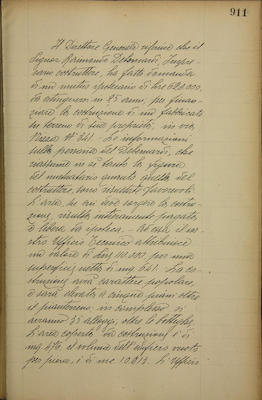 911
Il Direttore Generale informa che il
Signor Bernardo Delsordi, Impre-
sario costruttore, ha fatto domanda
di un mutuo ipotecario di Lire 620.000,
da estinguersi in 25 anni, per finan-
ziare la costruzione di un fabbricato
su terreno di sua proprietà, in via
N° 241. Le informazioni
sulla persona del
riunisce in sé tanto la figura
del mutuatario quanto quella del
costruttore, sono risultate favorevoli.
L'area, su cui deve sorgere la costru-
zione, risulta interamente pagata
e libera da ipoteca. Ad essa, il no-
stro Ufficio Tecnico attribuisce
un valore di Lire 110.000 per una
superficie netta di mq 641. La co-
struzione avrà carattere popolare,
e sarà elevata a cinque piani oltre
il pianterreno; in complesso si
avranno 35 alloggi, oltre le botteghe.
L'area coperta da costruzioni è di
mq 476, il volume dell'edificio vuoto
per pieno, è di mc 10.013. L'Ufficio